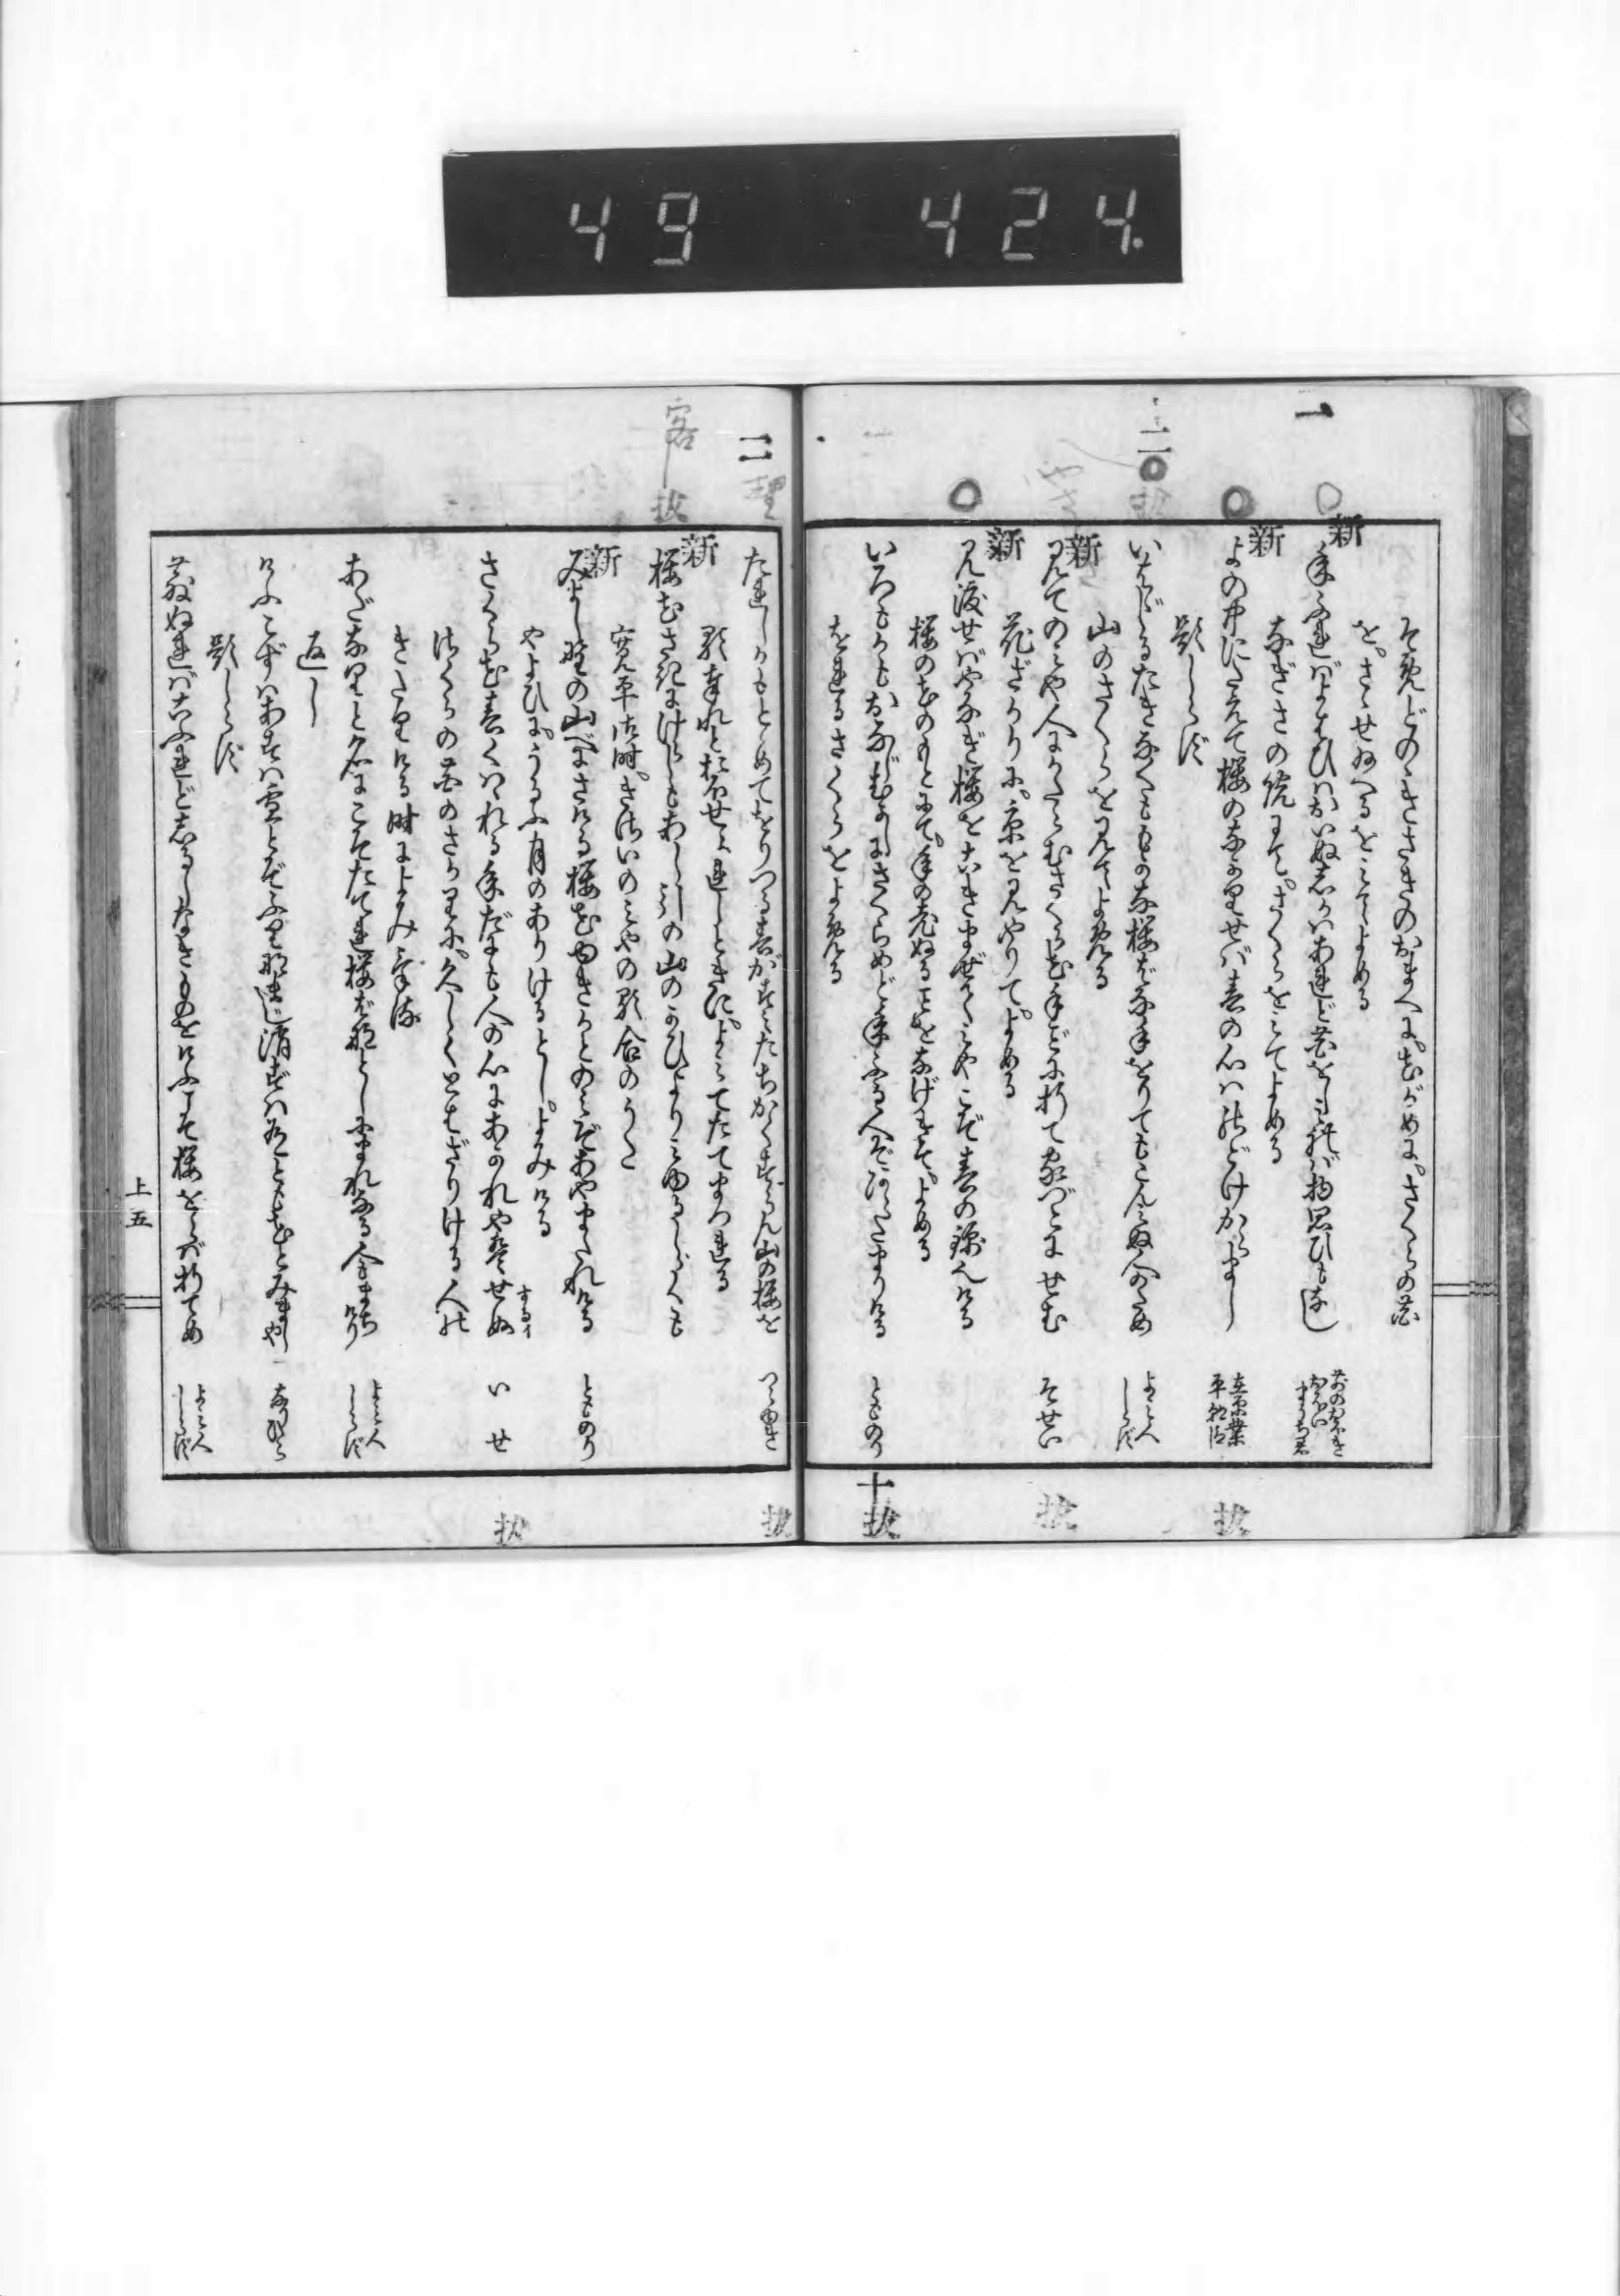 49 424.
一
そめどのゝきさきのおまへに。花がめに。さくらの花
を。さゝせ給へるをみてよめる
新
年ふればよはひはおいぬしかはあれど花をし見れば物思ひもなし
さきのおほき
おほいまうち君
なぎさの院にて。さくらをみてよめる
新
よの中にたえて桜のなかりせば春の心はのどけからまし
在原業平朝臣
題しらず
いしばしるたきなくもがな桜花手をりてもこん見ぬ人のため
よみ人しらず
山のさくらを見てよめる
新
見てのみや人にかたらむさくら花手ごとに折て家づとにせむ
そせい
花ざかりに。京を見やりて。よめる
新
見渡せばやなぎ桜をこきまぜてみやこぞ春の錦なりける
桜の花のもとにて。年の老ぬることをなげきて。よめる
いろもかもおなじむかしにさくらめど年ふる人ぞあらたまりける
とものり
をれるさくらをよめる
十
抜
抜
抜
二
たれしかもとめてをりつる春がすみたちかくすらん山の桜を
つらゆき
歌奉れとおほせられしときに。よみてたてまつれる
新
桜花さきにけらしもあし引の山のかひよりみゆるしら雲
寛平御時。きさいのみやの歌合のうた
新
みよし野の山べにさける桜花雪かとのみぞあやまたれける
とものり
やよひに。うるふ月のありけるとし。よみける
さくら花春くはゝれる年だにも人の心にあかれやはせぬ
するイ
いせ
さくらの花のさかりに。久しくとはざりける人の
きたりける時によみける
あだなりと名にこそたてれ桜花年にまれなる人もまちけり
よみ人しらず
返し
けふこずはあすは雪とぞふりなまし消ずは有とも花とみましや
なりひら
題しらず
ちりぬればこふれどしるしなきものをけふこそ桜をらばをりてめ
よみ人しらず
上五
客
抜
抜
抜